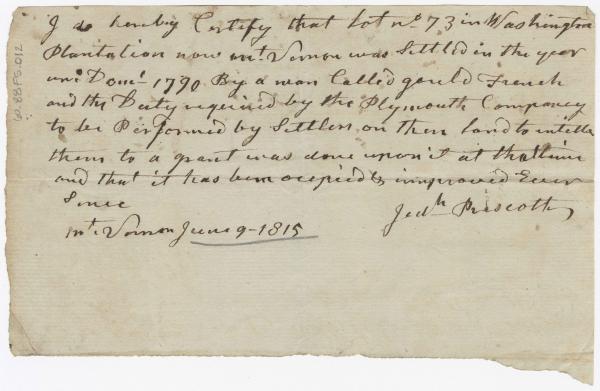 I do hereby Certify that Lot no 73 in Washington
Plantation now mt. Vernon was Settled in the year
ano Domi 1790 By a man Called gould French
and the Duty required by the Plymouth Compeney
to be Performed by Settlers on their land to intitle
them to a grant was done upon it at that time
and that it has been ocepied & improved Ever
Since
Jedh Prescott
mt. Vernon June 9-1815